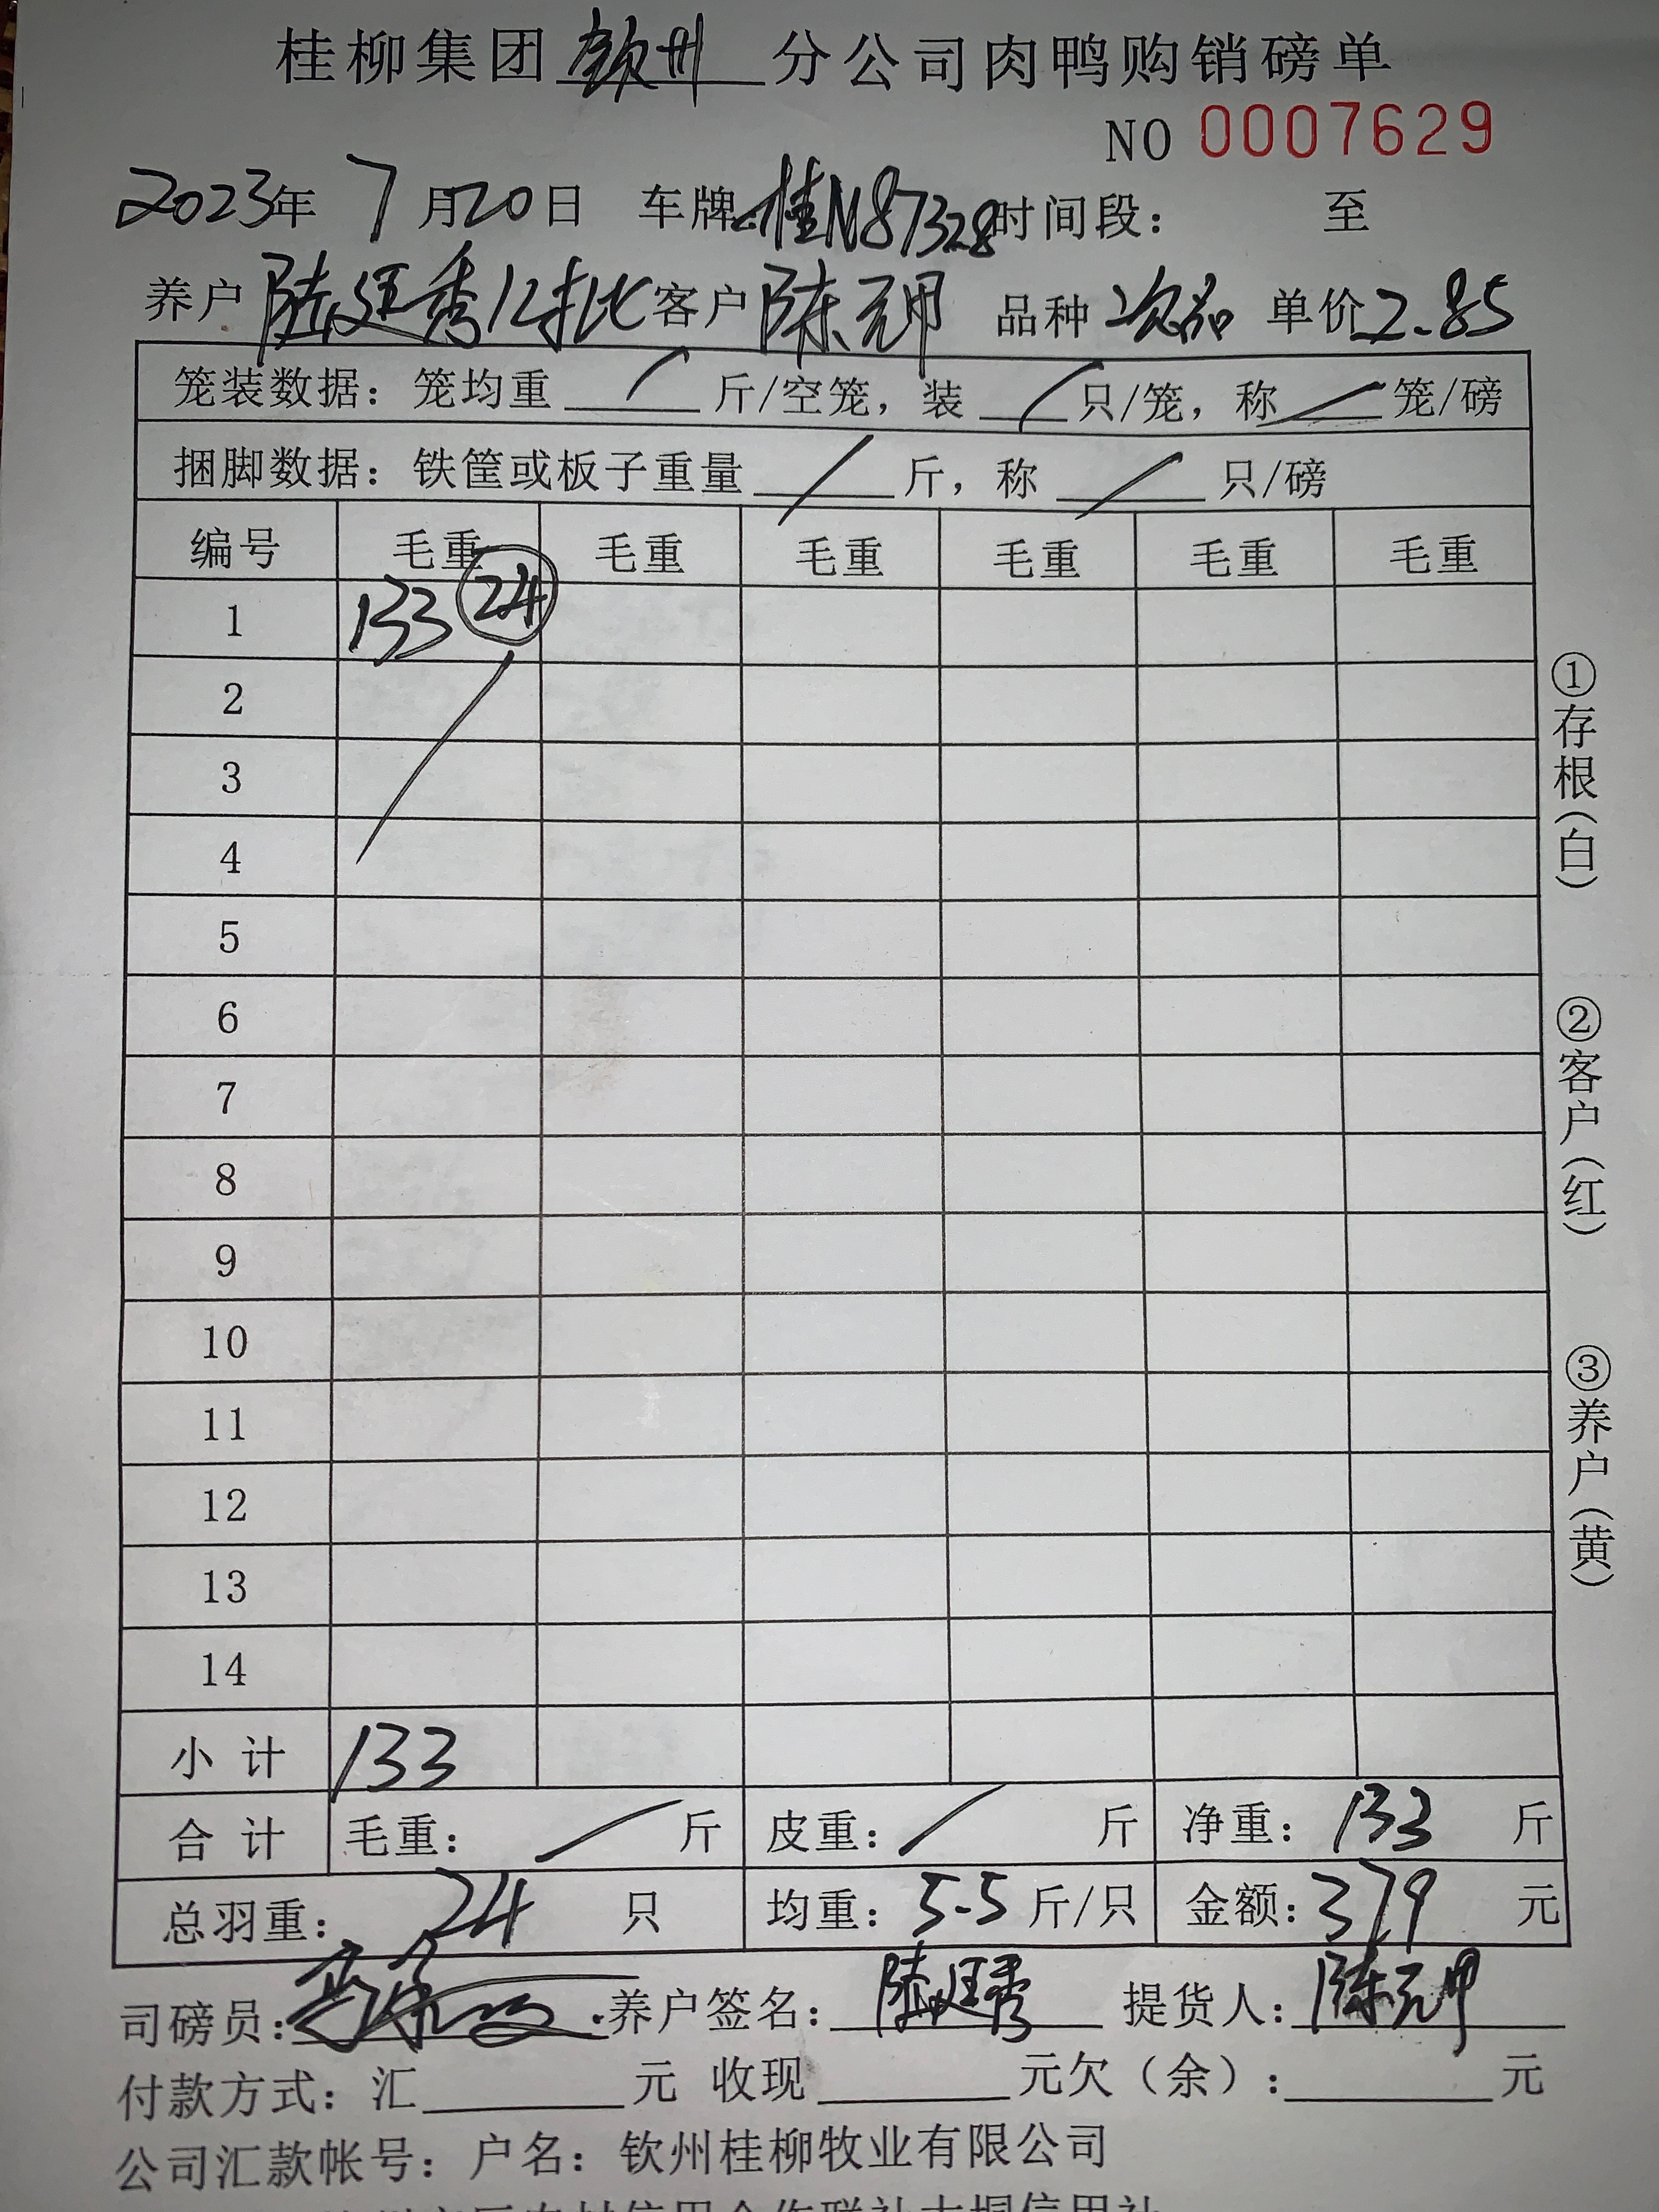 桂柳集团 钦州 分公司肉鸭购销磅单
NO 0007629
2023年 7月20日 车牌:桂N87328 时间段: 至
养户 陆廷秀12批 客户 陈元甲 品种 次品 单价2.85
笼装数据:笼均重 / 斤/空笼,装 / 只/笼,称 / 笼/磅
捆脚数据:铁筐或板子重量 / 斤,称 / 只/磅
编号 毛重 毛重 毛重 毛重 毛重 毛重
1 133 24
2
3
4
5
6
7
8
9
10
11
12
13
14
小计 133
合计 毛重: / 斤 皮重: / 斤 净重: 133 斤
总羽重: 24 只 均重: 5.5 斤/只 金额: 379 元
司磅员: 养户签名: 陆廷秀 提货人: 陈元甲
付款方式:汇 元 收现 元欠(余): 元
公司汇款帐号:户名:钦州桂柳牧业有限公司
①存根(白)
②客户(红)
③养户(黄)